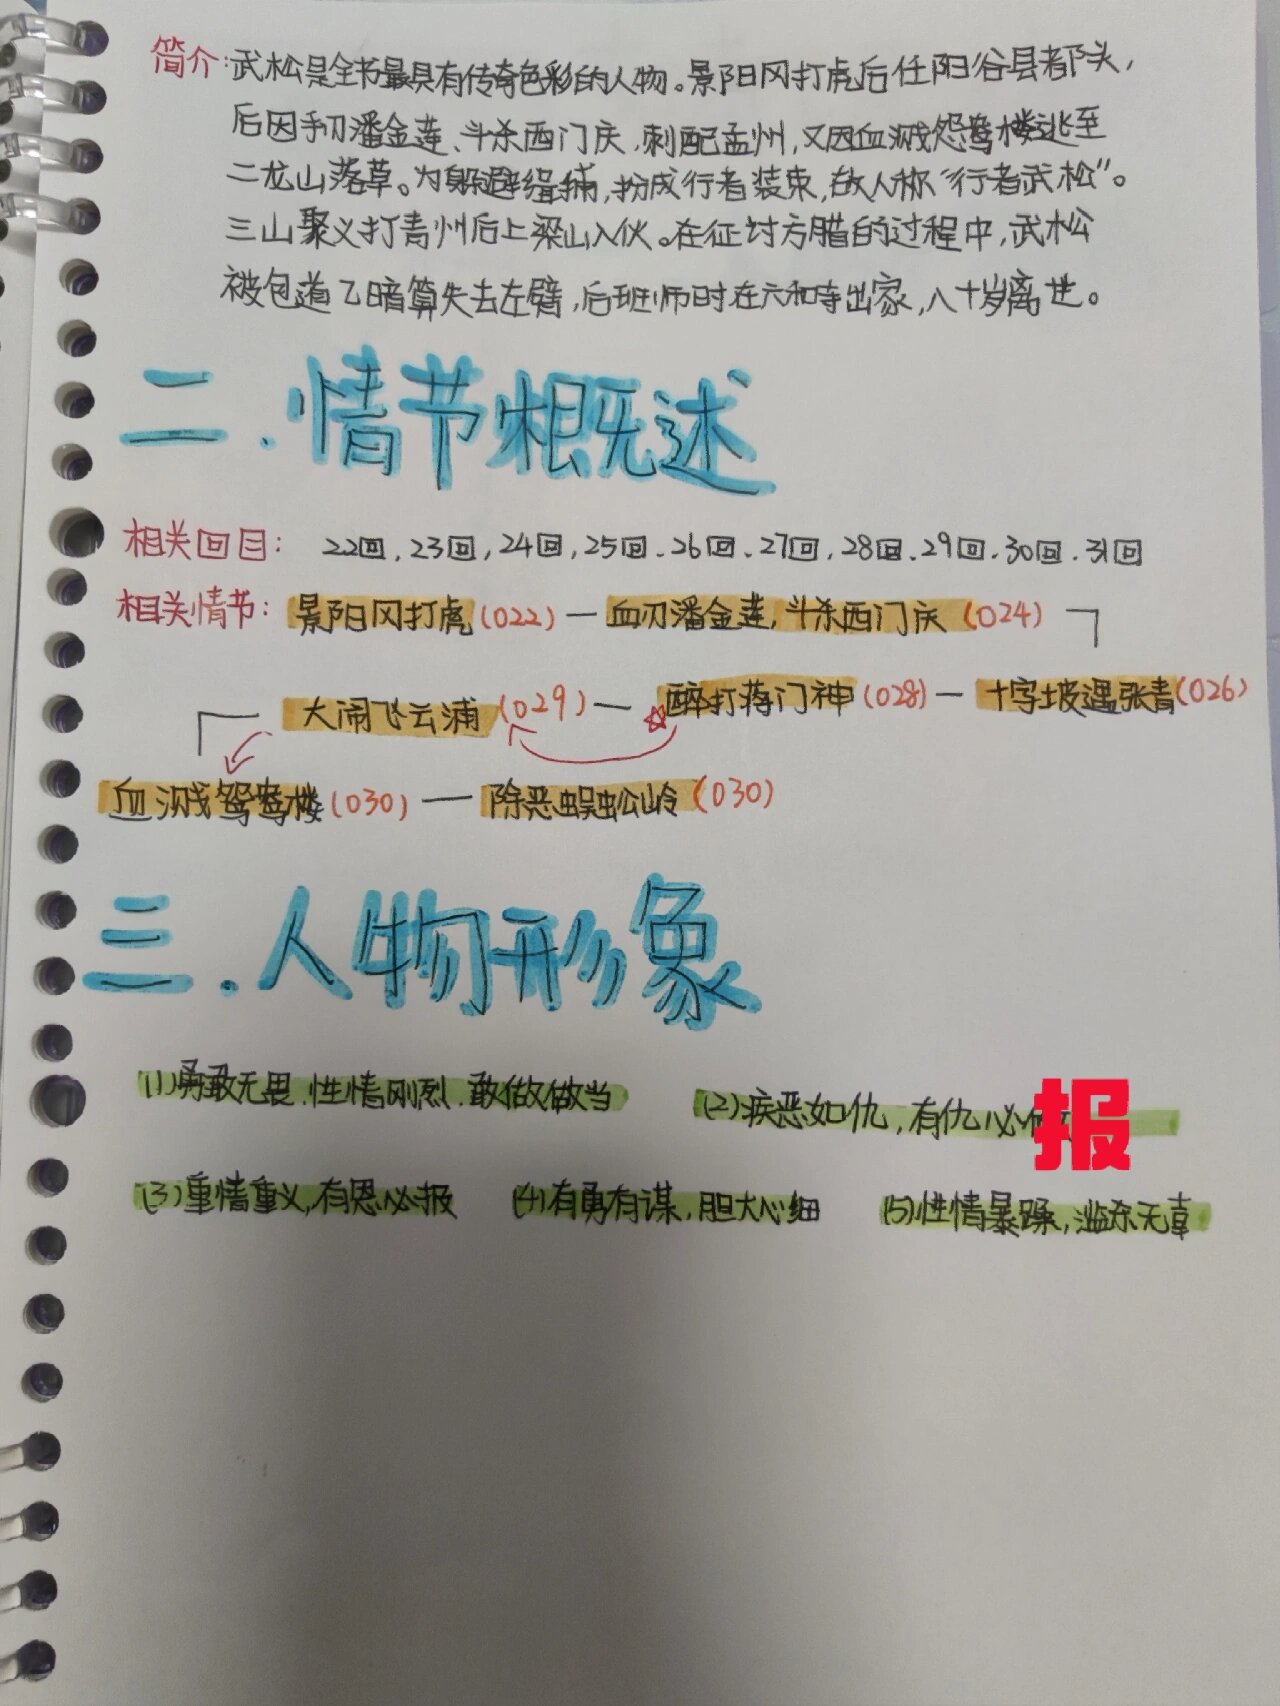 简介:武松是全书最具有传奇色彩的人物。景阳冈打虎后任阳谷县都头,
后因手刃潘金莲、斗杀西门庆,刺配孟州,又因血溅鸳鸯楼逃至
二龙山落草。为躲避缉捕,扮成行者装束,故人称“行者武松”。
三山聚义打青州后上梁山入伙。在征讨方腊的过程中,武松
被包道乙暗算失去左臂,后班师时在六和寺出家,八十岁离世。
二.情节概述
相关回目: 22回,23回,24回,25回、26回、27回,28回、29回、30回、31回
相关情节: 景阳冈打虎(022)—血刃潘金莲,斗杀西门庆(024)
大闹飞云浦(029)—醉打蒋门神(028)—十字坡遇张青(026)
血溅鸳鸯楼(030)—除恶蜈蚣岭(030)
三.人物形象
(1)勇敢无畏、性情刚烈、敢做做当 (2)疾恶如仇,有仇必报
(3)重情重义,有恩必报 (4)有勇有谋,胆大心细 (5)性情暴躁,滥杀无辜